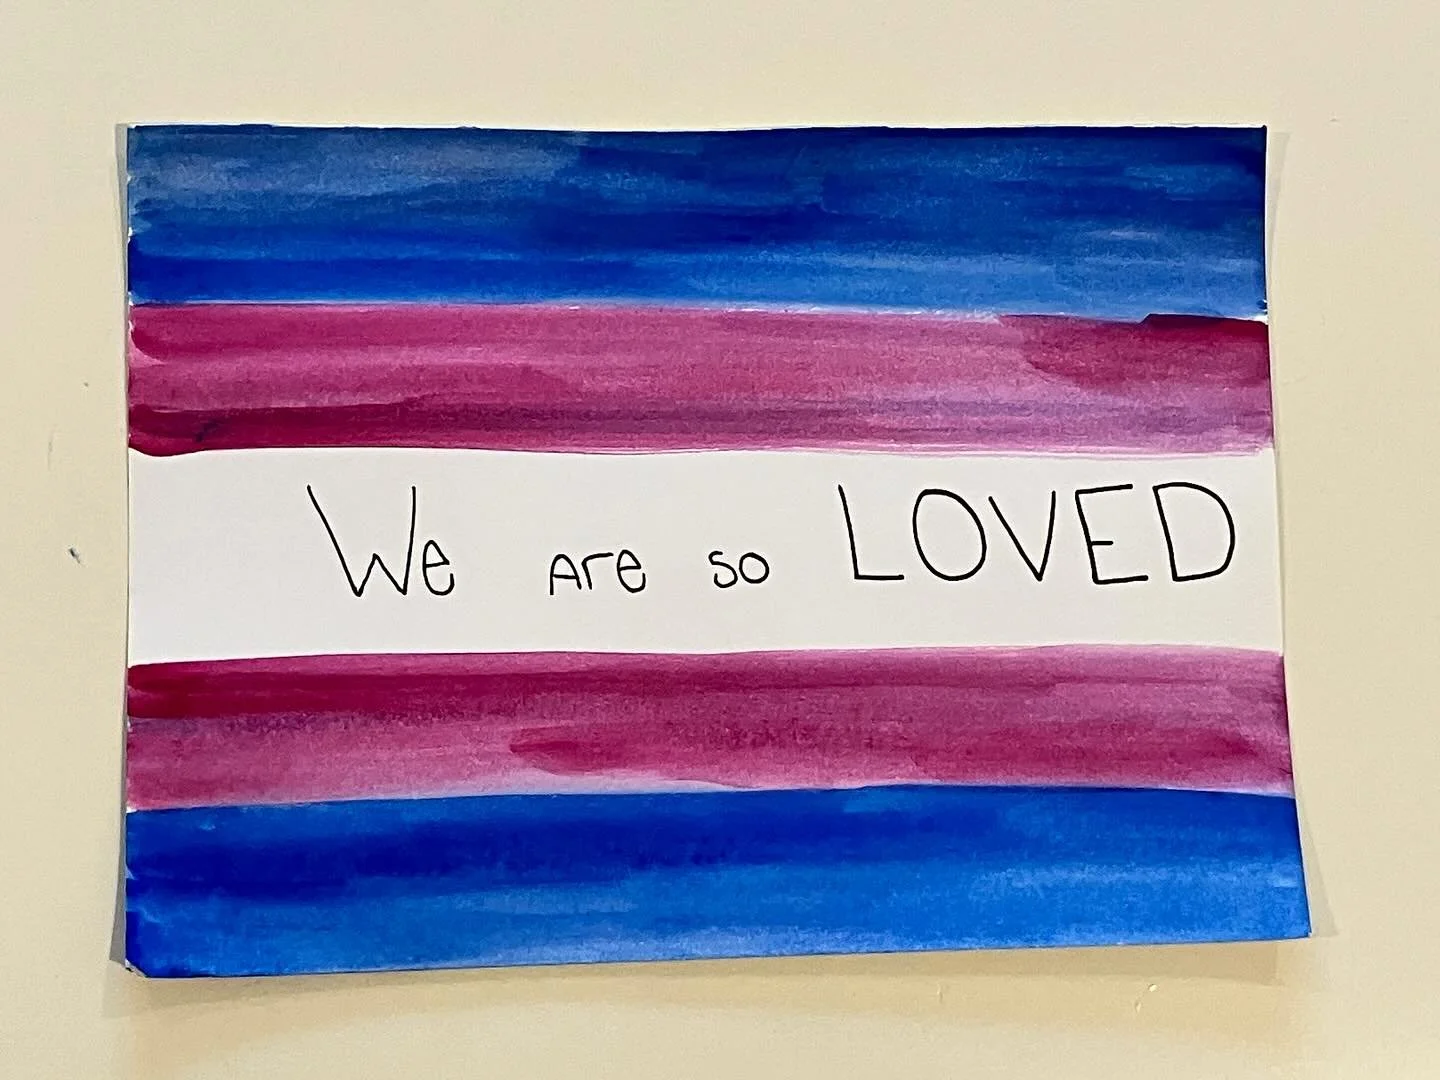 We are so LOVED